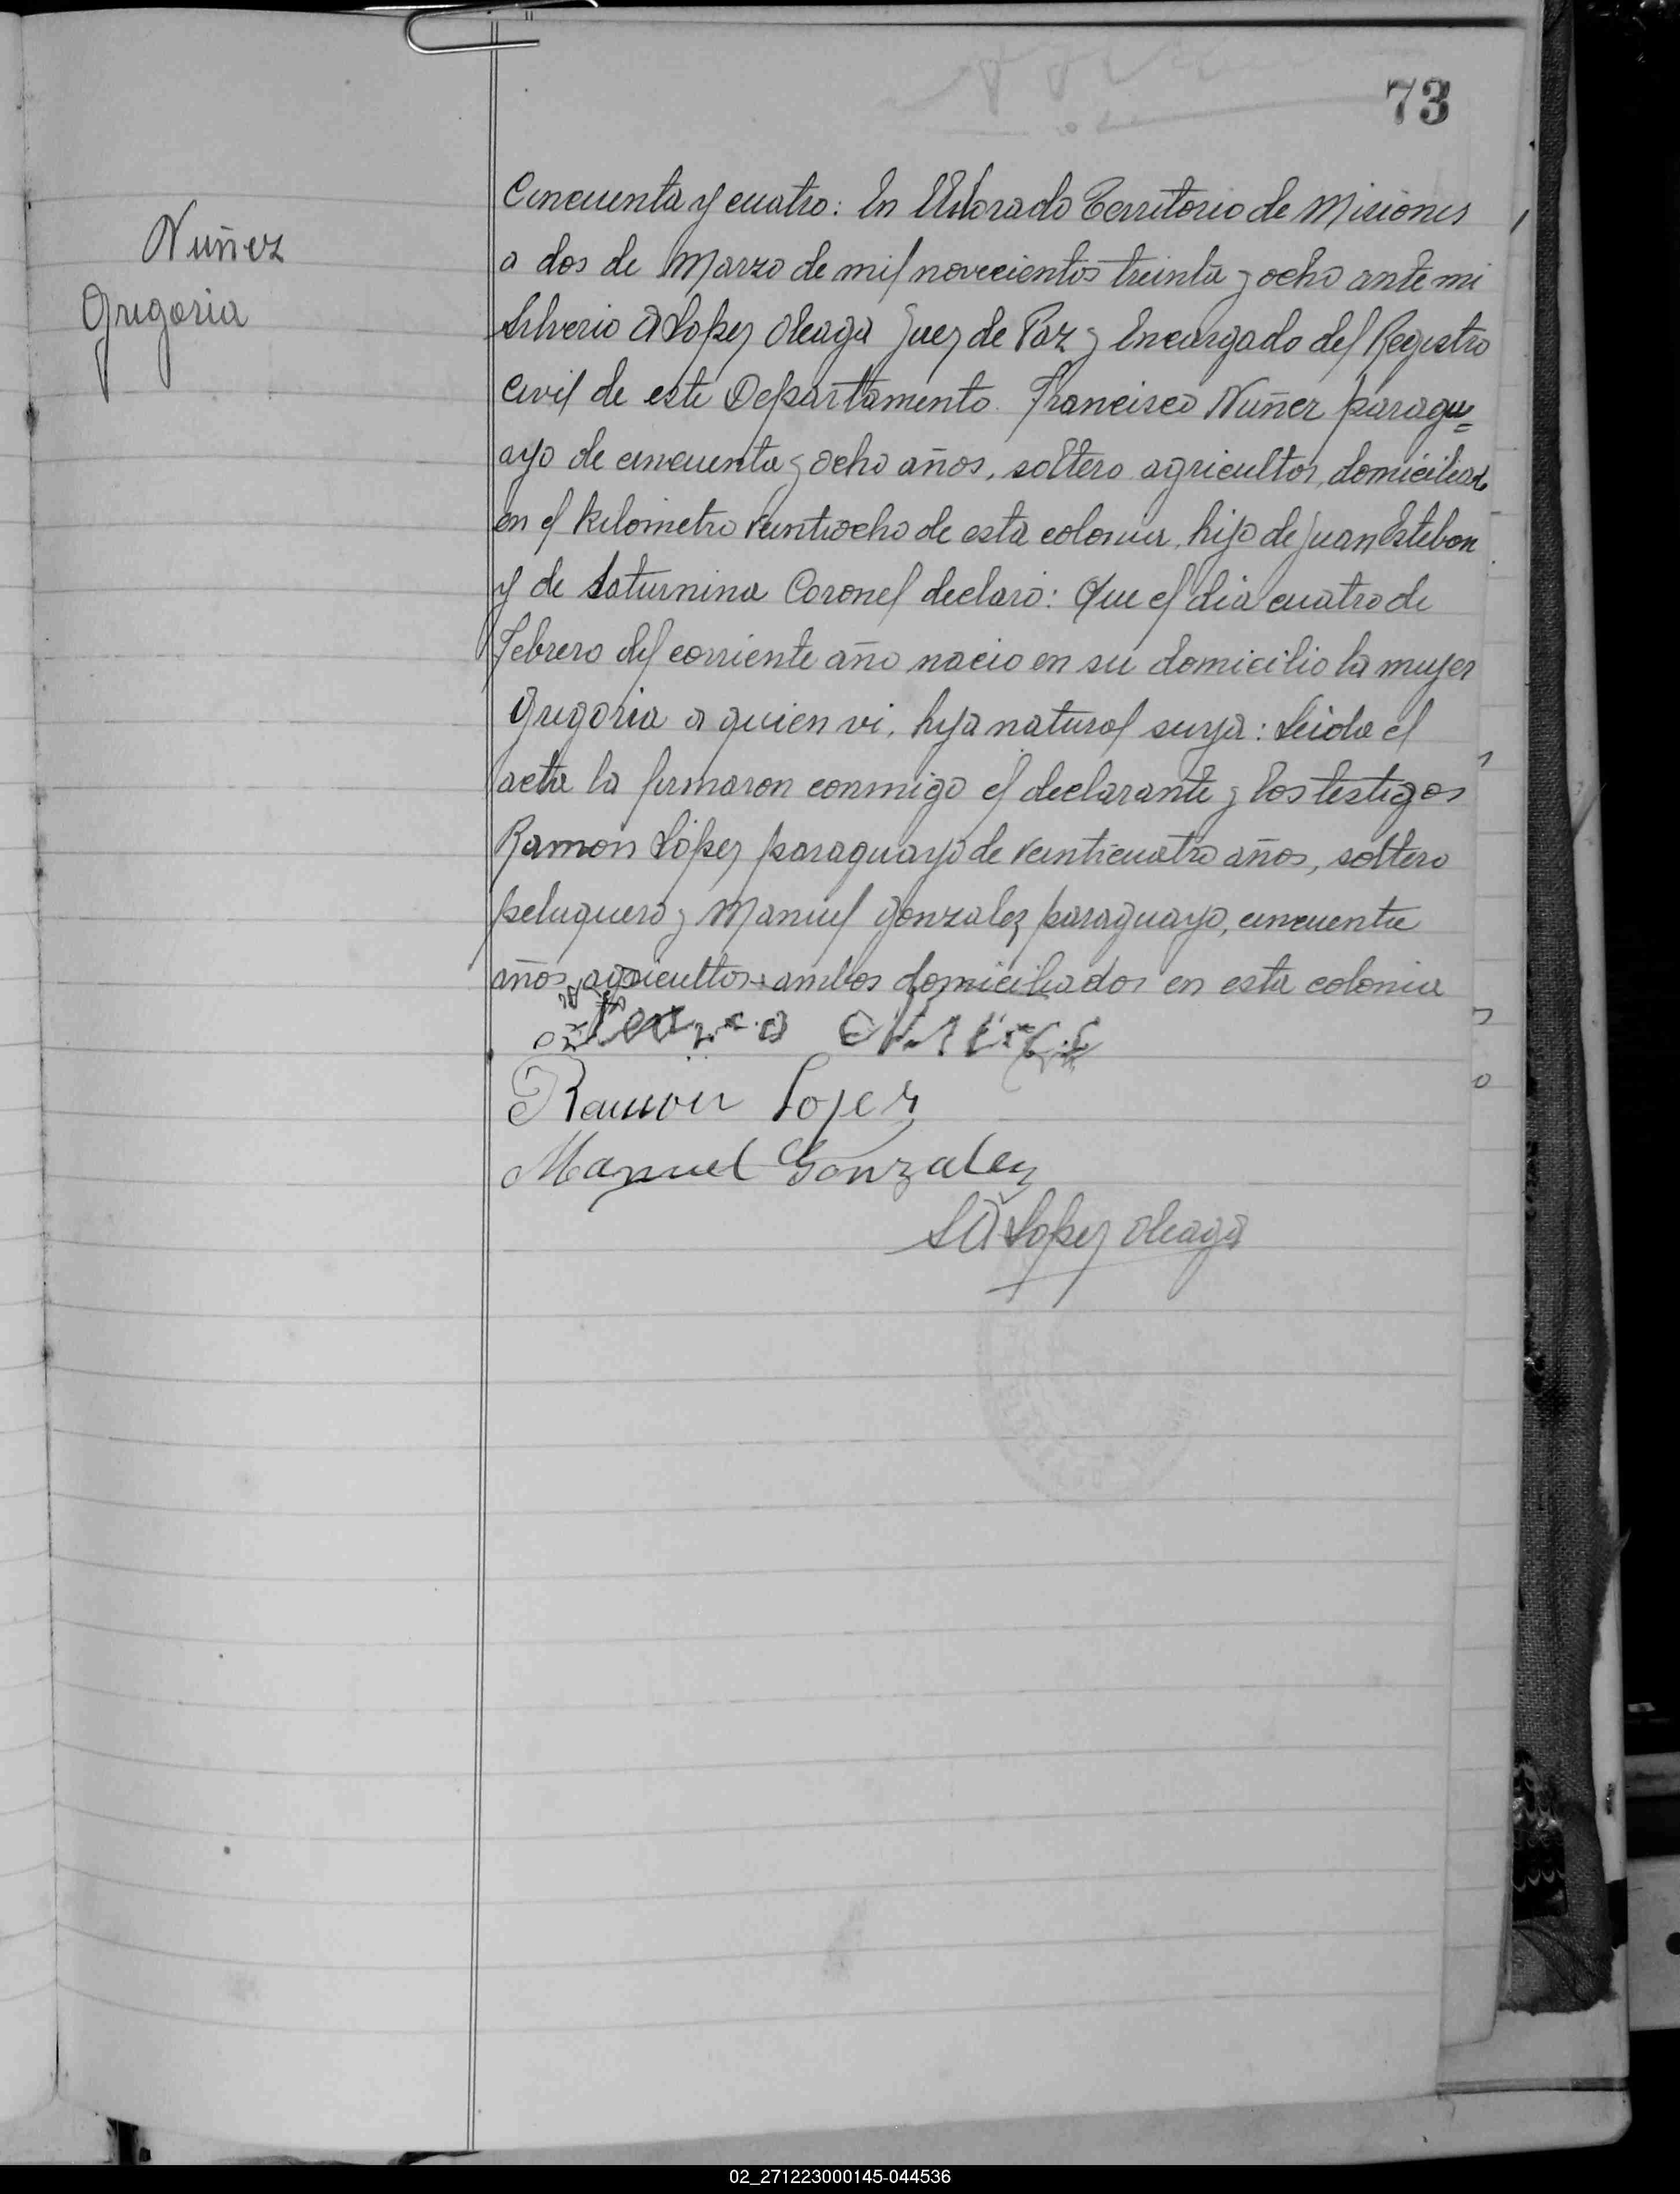 73
Nuñez
Gregoria
Cincuenta y cuatro: En Eldorado Territorio de Misiones
a dos de Marzo de mil novecientos treinta y ocho ante mi
Silverio A Lopez Oleaga Juez de Paz y Encargado del Registro
Civil de este Departamento. Francisco Nuñez paragu=
ayo de cincuenta y ocho años, soltero agricultor, domiciliado
en el kilometro veintiocho de esta colonia, hijo de Juan Esteban
y de Saturnina Coronel declaró: Que el dia cuatro de
Febrero del corriente año nacio en su domicilio la mujer
Gregoria a quien vi, hija natural suya: Leida el
acta la firmaron conmigo el declarante y los testigos
Ramón López paraguayo de veinticuatro años, soltero
peluquero y Manuel Gonzalez paraguayo, cincuenta
años agricultor ambos domiciliados en esta colonia
Ramon Lopez
Manuel Gonzalez
S A Lopez Oleaga
02_271223000145-044536